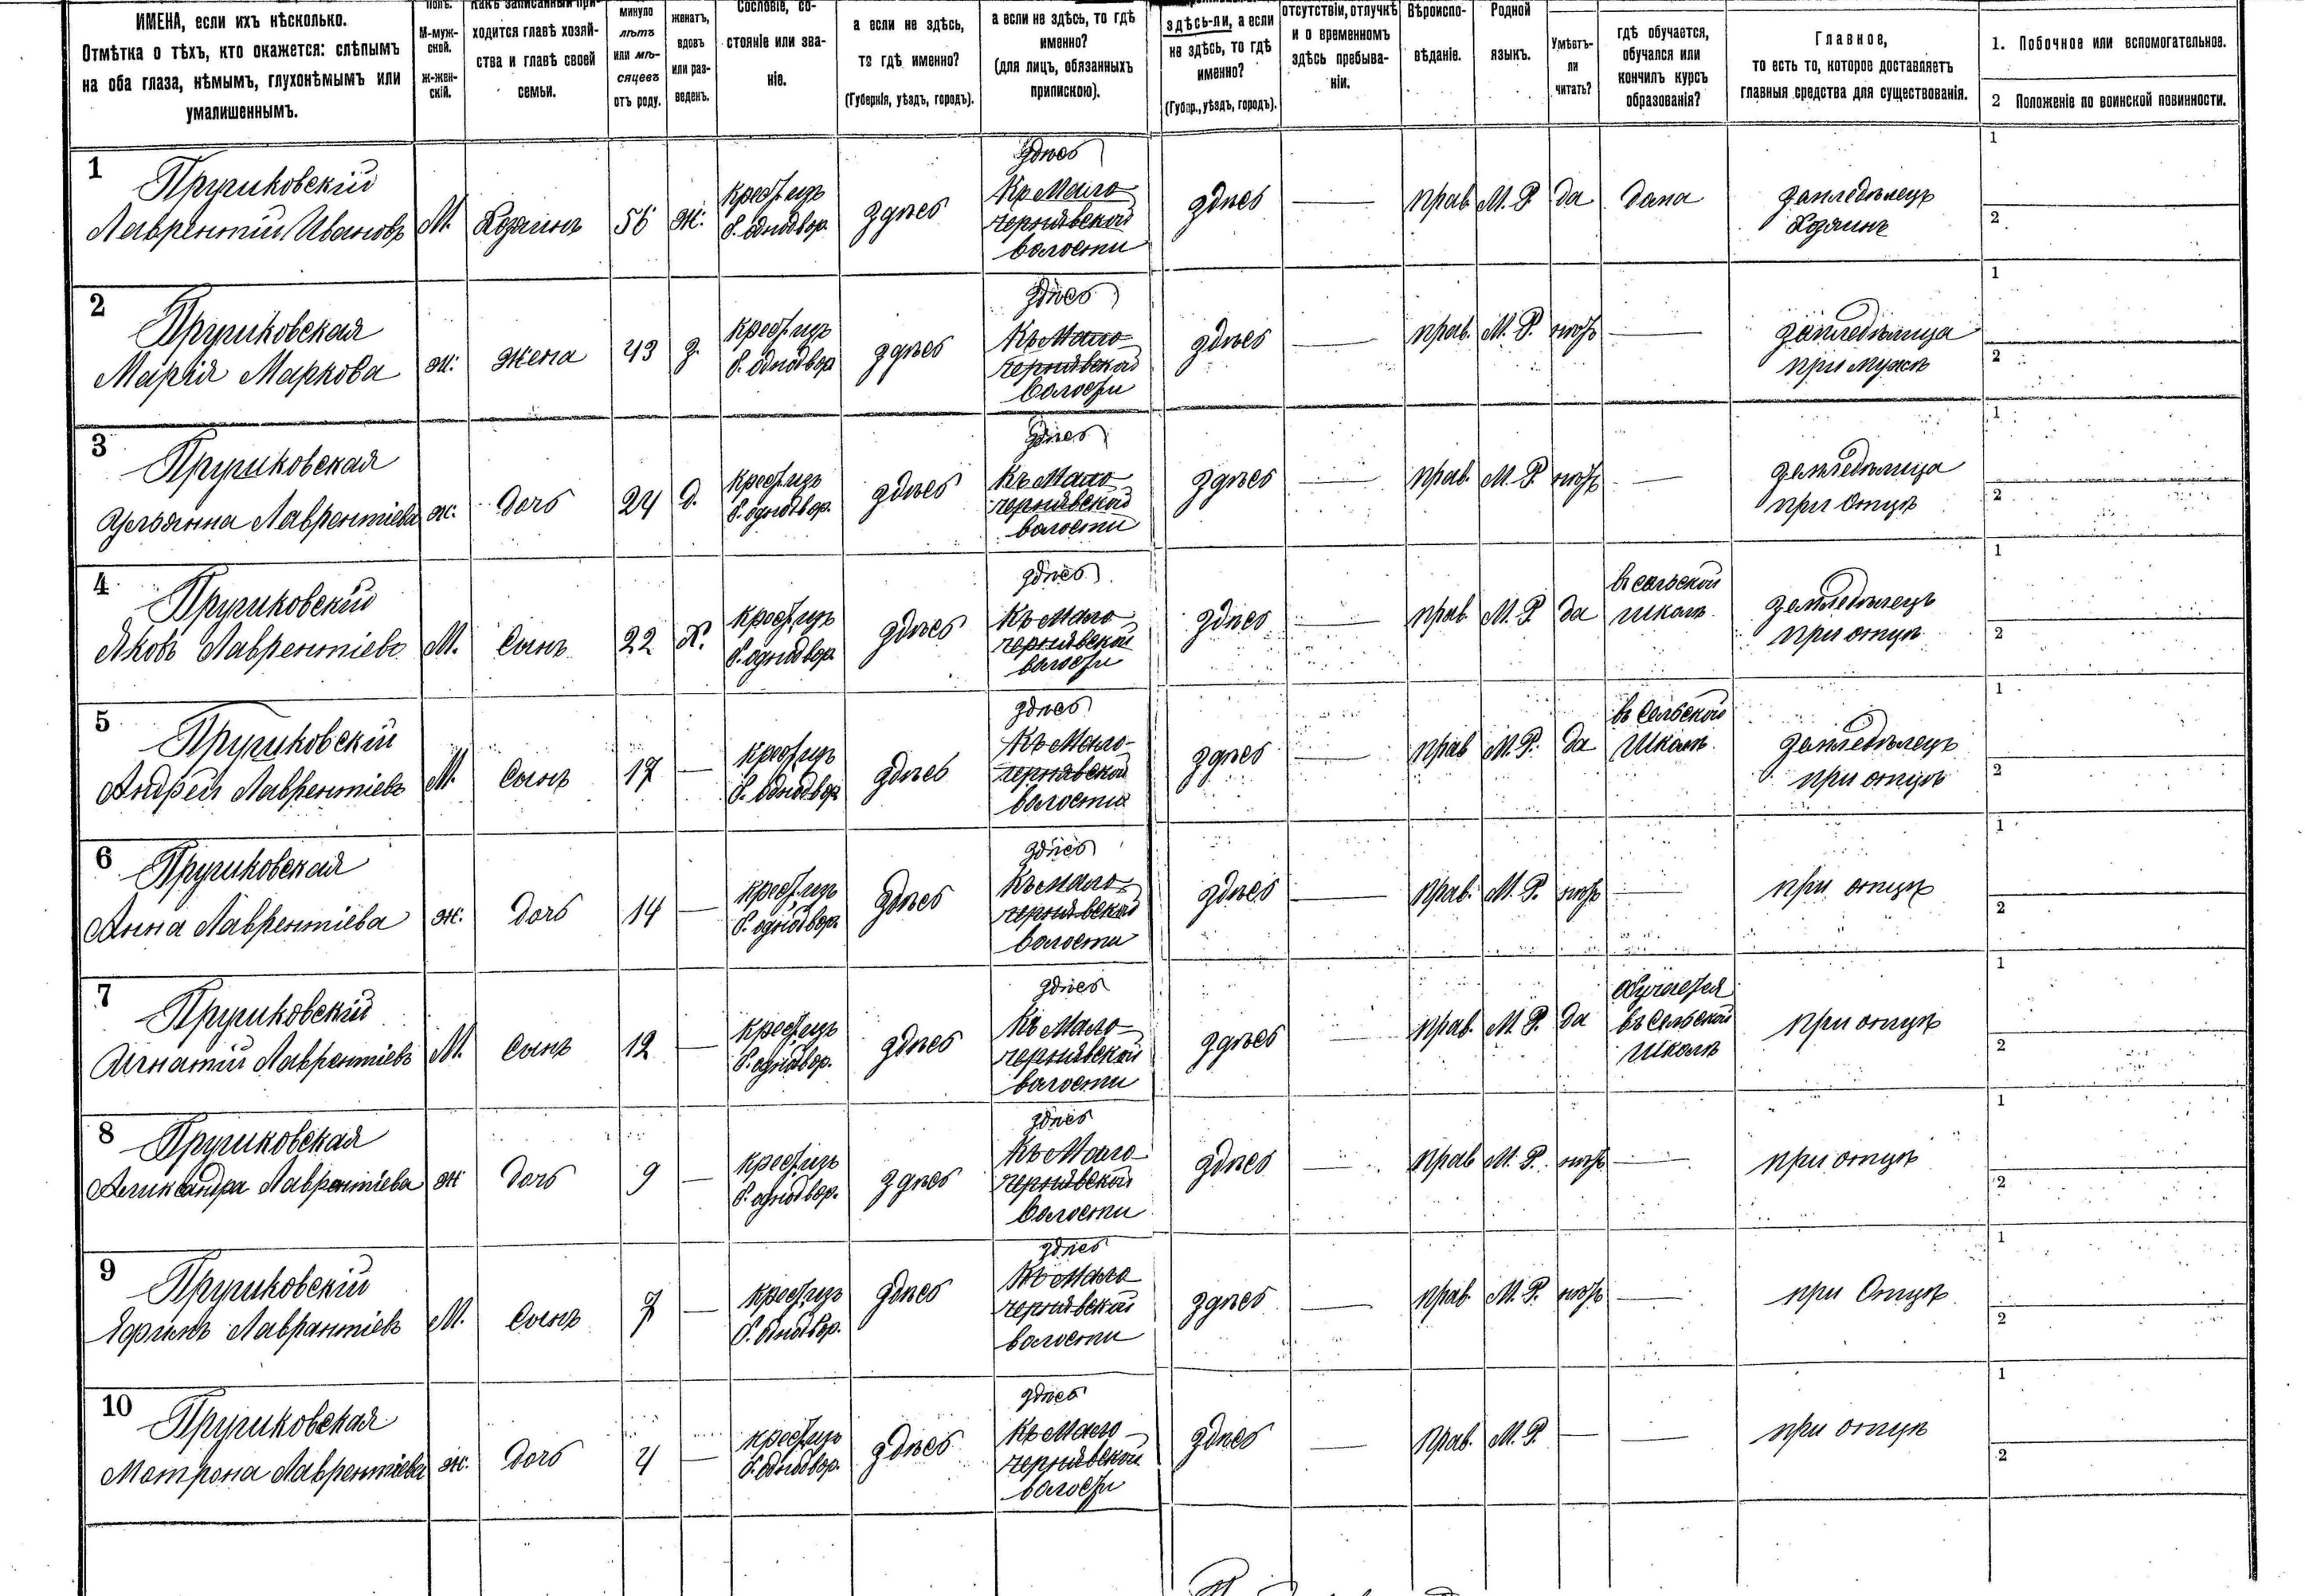 ИМЕНА, если ихъ нѣсколько.
Отмѣтка о тѣхъ, кто окажется: слѣпымъ
на оба глаза, нѣмымъ, глухонѣмымъ или
умалишеннымъ.
М-муж-
ской.
ж-жен-
скій.
ходится главѣ хозяй-
ства и главѣ своей
семьи.
минуло
лѣтъ
или мѣ-
сяцевъ
отъ роду.
женатъ,
вдовъ
или раз-
веденъ.
Сословіе, со-
стояніе или зва-
ніе.
а если не здѣсь,
то гдѣ именно?
(Губернія, уѣздъ, городъ).
а если не здѣсь, то гдѣ
именно?
(для лицъ, обязанныхъ
припискою).
здѣсь-ли, а если
не здѣсь, то гдѣ
именно?
(Губер., уѣздъ, городъ).
отсутствіи, отлучкѣ
и о временномъ
здѣсь пребыва-
ніи.
Вѣроиспо-
вѣданіе.
Родной
языкъ.
Умѣетъ-
ли
читать?
гдѣ обучается,
обучался или
кончилъ курсъ
образованія?
Главное,
то есть то, которое доставляетъ
главныя средства для существованія.
1. Побочное или вспомогательное.
2 Положеніе по воинской повинности.
1
Пручиковскій
Лаврентій Ивановъ
М.
Хозяинъ
56
ж.
крест. изъ
б. однодвор.
здѣсь
здѣсь
Къ Мало-
чернявской
волости
здѣсь
—
прав.
М. Р.
да
дома
земледѣлецъ
Хозяинъ
1
2
2
Пручиковская
Марія Маркова
ж.
жена
43
з.
крест. изъ
б. однодвор.
здѣсь
здѣсь
Къ Мало-
чернявской
волости
здѣсь
—
прав.
М. Р.
нѣтъ
—
земледѣлица
при мужѣ
1
2
3
Пручиковская
Ульянна Лаврентіева
ж.
дочь
24
д.
крест. изъ
б. однодвор.
здѣсь
здѣсь
Къ Мало-
чернявской
волости
здѣсь
—
прав.
М. Р.
нѣтъ
—
земледѣлица
при отцѣ
1
2
4
Пручиковскій
Яковъ Лаврентіевъ
М.
Сынъ
22
Х.
крест. изъ
б. однодвор.
здѣсь
здѣсь
Къ Мало-
чернявской
волости
здѣсь
—
прав.
М. Р.
да
въ сельской
школѣ
земледѣлецъ
при отцѣ
1
2
5
Пручиковскій
Андрей Лаврентіевъ
М.
Сынъ
17
—
крест. изъ
б. однодвор.
здѣсь
здѣсь
Къ Мало-
чернявской
волости
здѣсь
—
прав.
М. Р.
да
въ сельской
школѣ
земледѣлецъ
при отцѣ
1
2
6
Пручиковская
Анна Лаврентіева
ж.
дочь
14
—
крест. изъ
б. однодвор.
здѣсь
здѣсь
Къ Мало-
чернявской
волости
здѣсь
—
прав.
М. Р.
нѣтъ
—
при отцѣ
1
2
7
Пручиковскій
Игнатій Лаврентіевъ
М.
Сынъ
12
—
крест. изъ
б. однодвор.
здѣсь
здѣсь
Къ Мало-
чернявской
волости
здѣсь
—
прав.
М. Р.
да
обучается
въ сельской
школѣ
при отцѣ
1
2
8
Пручиковская
Александра Лаврентіева
ж
дочь
9
—
крест. изъ
б. однодвор.
здѣсь
здѣсь
Къ Мало-
чернявской
волости
здѣсь
—
прав
М. Р.
нѣтъ
—
при отцѣ
1
2
9
Пручиковскій
Ефимъ Лаврентіевъ
М.
Сынъ
7
—
крест. изъ
б. однодвор.
здѣсь
здѣсь
Къ Мало-
чернявской
волости
здѣсь
—
прав.
М. Р.
нѣтъ
—
при Отцѣ
1
2
10
Пручиковская
Мотрона Лаврентіева
ж.
дочь
4
—
крест. изъ
б. однодвор.
здѣсь
здѣсь
Къ Мало-
чернявской
волости
здѣсь
—
прав.
М. Р.
—
—
при отцѣ
1
2